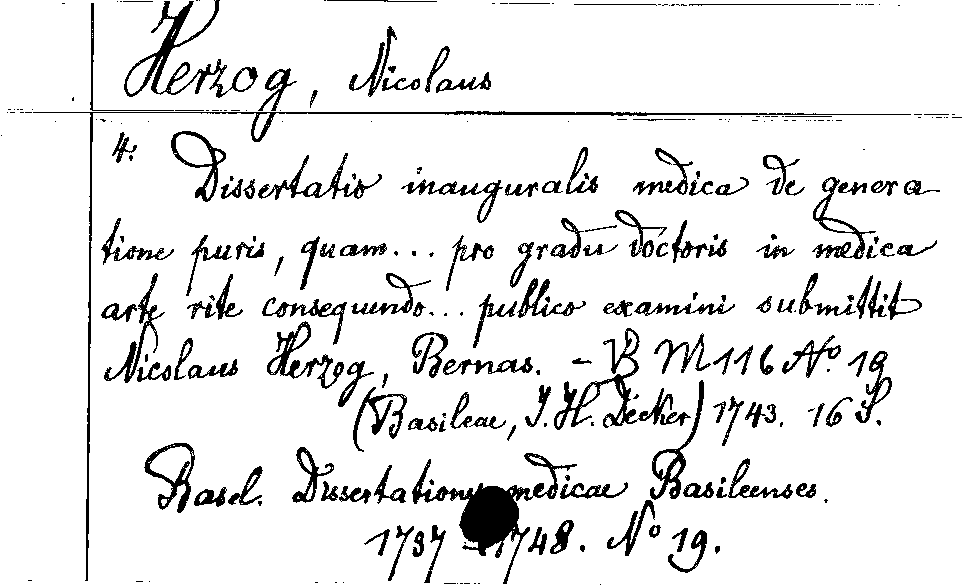 Herzog, Nicolaus
4:
Dissertatio inauguralis medica de genera-
tione puris, quam... pro gradu doctoris in medica
arte rite consequendo... publico examini submittit
Nicolaus Herzog, Bernas. - B M 116 No. 19
(Basileae, J. H. Decker) 1743. 16 S.
Basel. Dissertationes medicae Basileenses.
1737 - 1748. No 19.